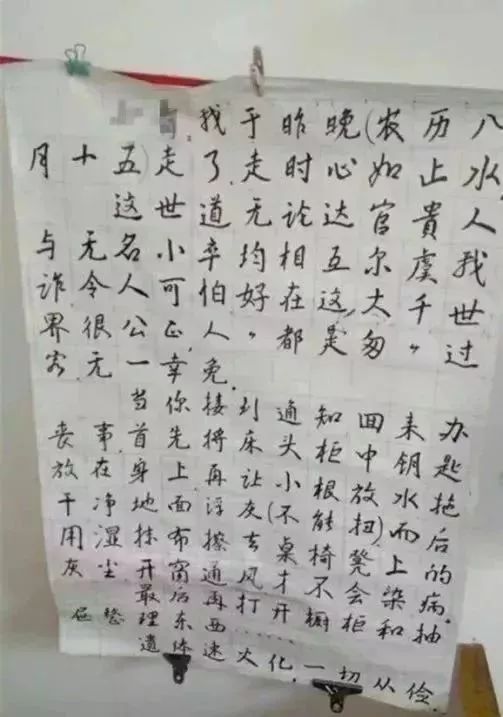 有,找于昨晚(农历八
月十五)走了,走时心如止水,
这世道无论达官貴人
与无名小卒均相互尔虞我
诈令人可怕好在这大千世
界很公正,人都是匆"过
客无一幸免.
当你接到通知回来办
丧事首先将床头柜中钥匙
放在身上再让小根放水拖
干净地面浮灰(不能扭)而后
用湿抹布擦去桌椅凳上的
灰尘开窗通风才不会染病.
最后再打开橱柜和抽
屉整理东西……
遗体迅速火化,一切从俭.